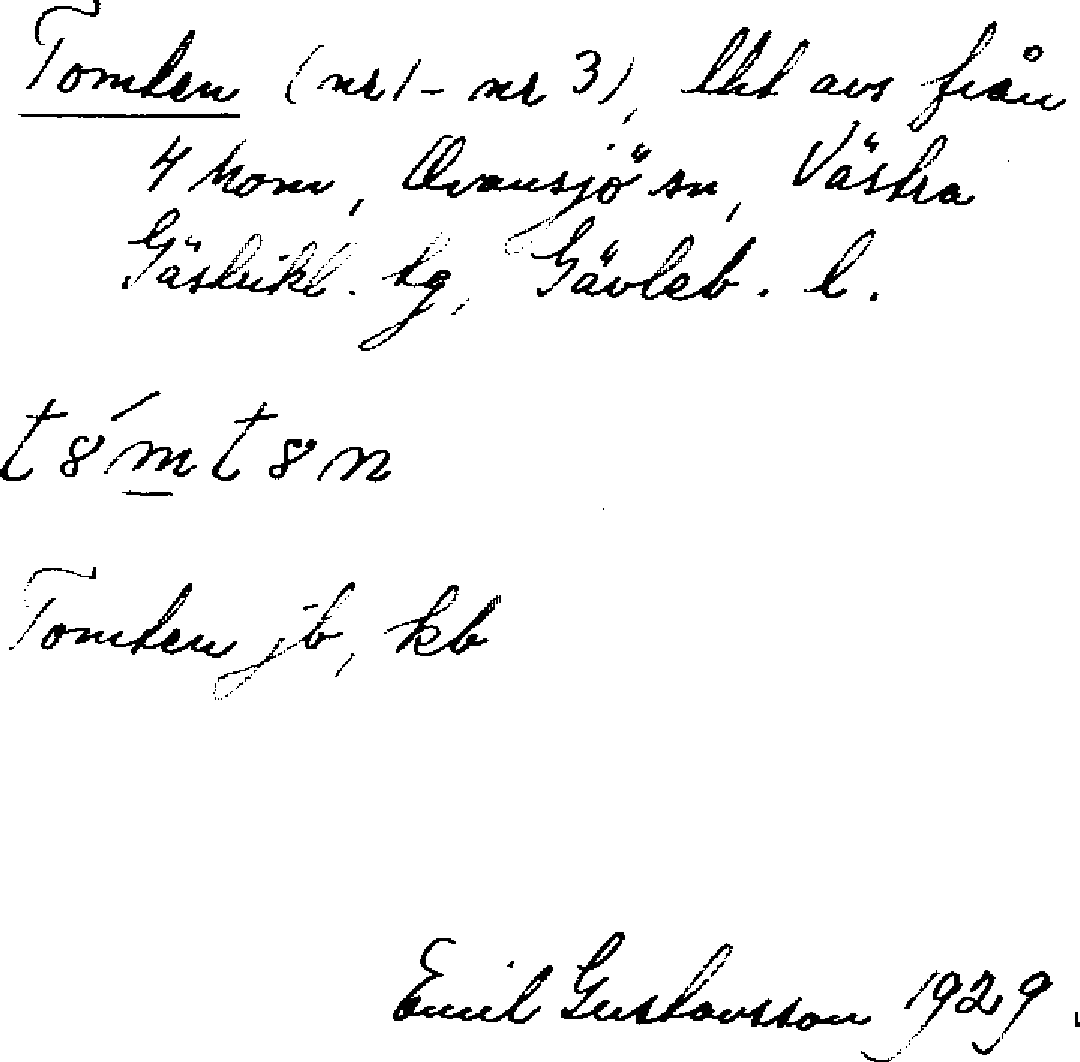 Tomten (nr 1 - nr 3), lht avs från
4 Mom, Ovansjö sn, Västra
Gästrikl. tg, Gävleb. l.
t8́m̲t8n
Tomten jb, kb
Emil Gustavsson 1929.